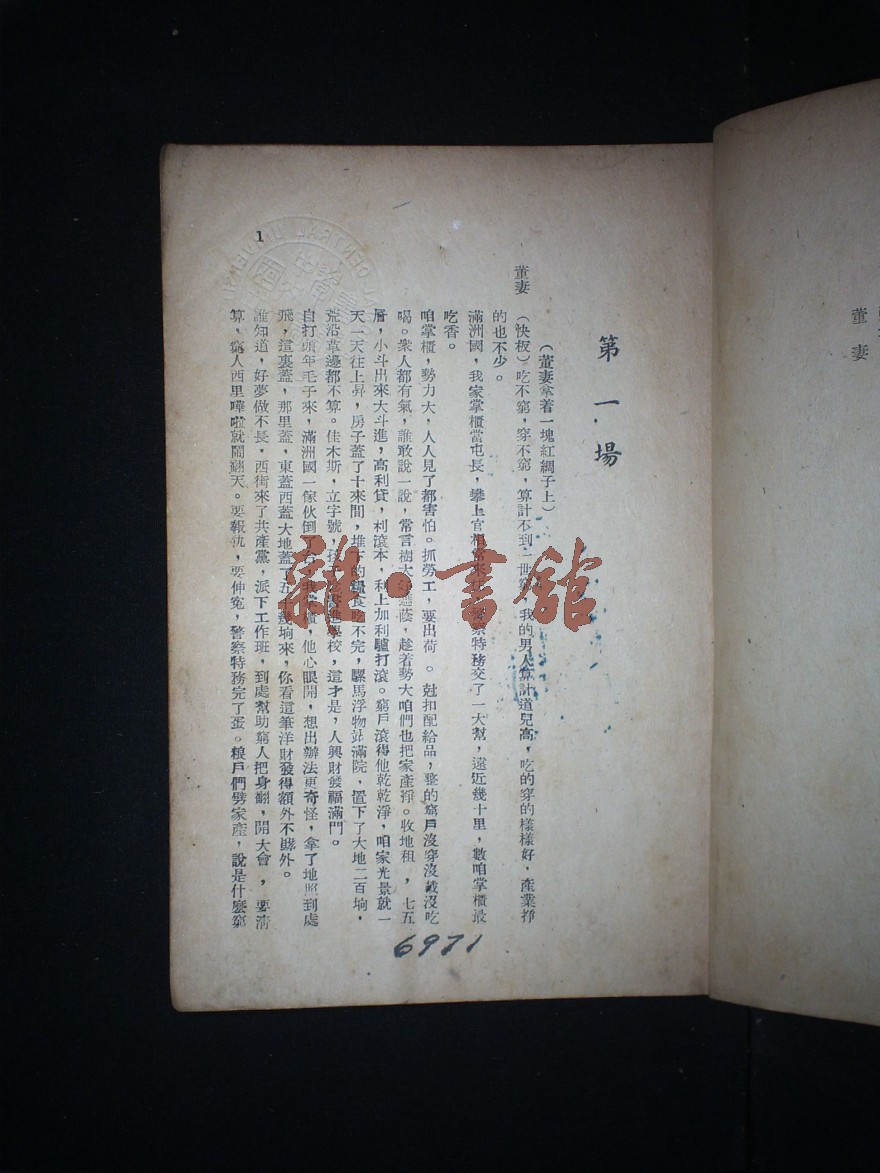 董妻
第一場
（董妻拿着一塊紅綢子上）
董妻　（快板）吃不窮，穿不窮，算計不到一世窮，我的男人算計道兒高，吃的穿的樣樣好，產業掙
的也不少。
滿洲國，我家掌櫃當屯長，攀上官相常來 警察特務交了一大幫，遠近幾十里，數咱掌櫃最
吃香。
咱掌櫃，勢力大，人人見了都害怕。抓勞工，要出荷。尅扣配給品，整的窮戶沒穿沒戴沒吃
喝。衆人都有氣，誰敢說一說，常言樹大好遮蔭，趁着勢大咱們也把家產掙。收地租，七五
層，小斗出來大斗進，高利貸，利滾本，利上加利驢打滾。窮戶滾得他乾乾淨，咱家光景就一
天一天往上昇，房子蓋了十來間，堆下的糧食吃不完，騾馬浮物站滿院，置下了大地二百垧，
荒沿草邊都不算。佳木斯，立字號，孩子 書進學校，這才是，人興財發福滿門。
自打頭年毛子來，滿洲國一傢伙倒了台，我掌櫃，他心眼開，想出辦法更奇怪，拿了地照到處
飛，這裏蓋，那里蓋，東蓋西蓋大地蓋了五十幾垧來，你看這筆洋財發得額外不賖外。
誰知道，好夢做不長，西街來了共產黨，派下工作班，到處幫助窮人把身翻，開大會，要清
算，窮人西里嘩啦就鬧翻天。要報仇，要伸寃，警察特務完了蛋。粮戶們劈家產，說是什麽窮
1
6971
雜·書館